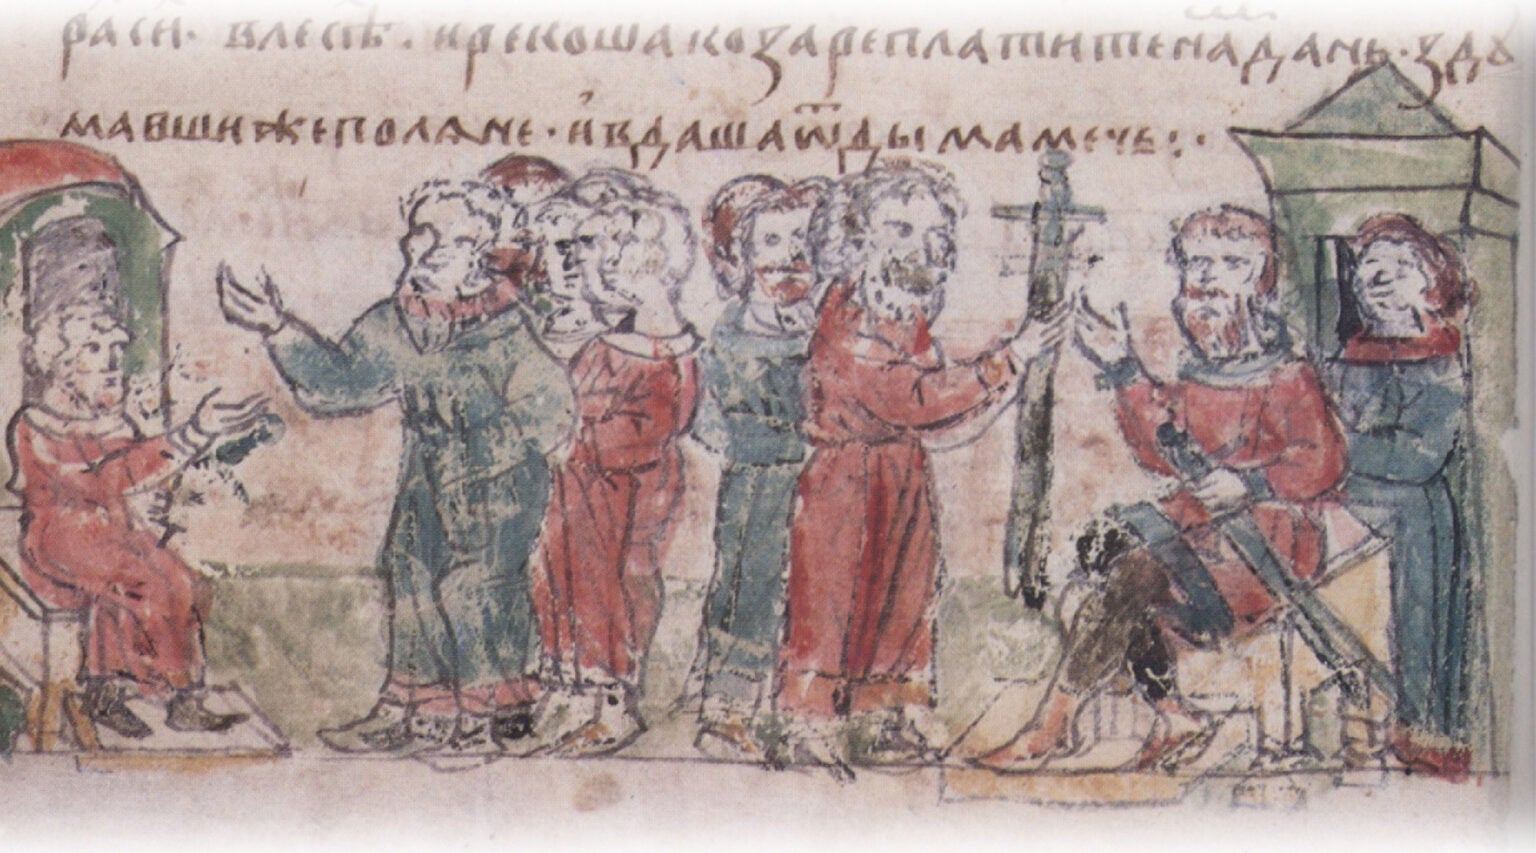 раси · влесѣ · ирекошакозареплатитенадань · зду
мавшижеполяне · ивдашаѿдымамечь :·